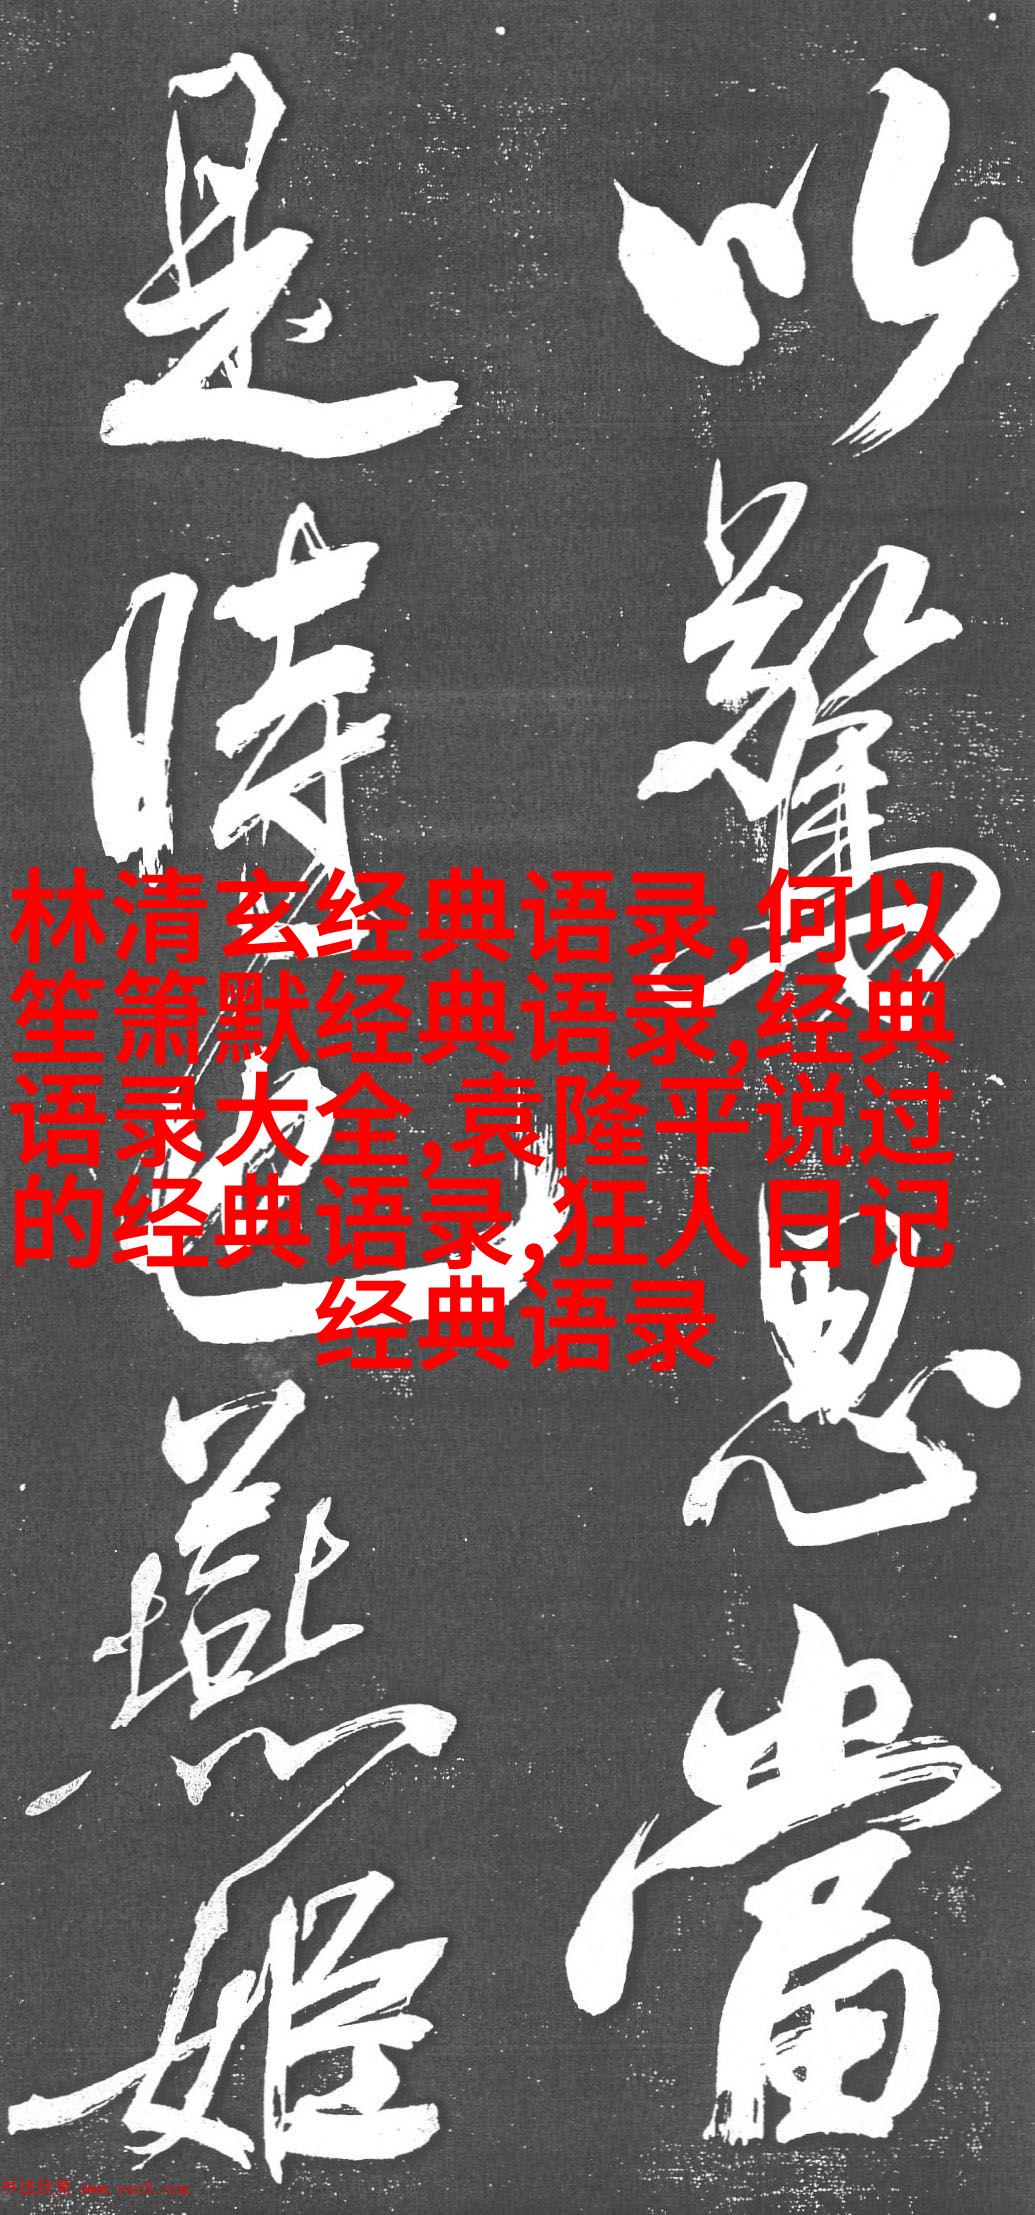 以騖思當
是時也燕姬
林清玄经典语录,何以
笙箫默经典语录,经典
语录大全,袁隆平说过
的经典语录,狂人日记
经典语录
书法欣赏 www.yac8.com